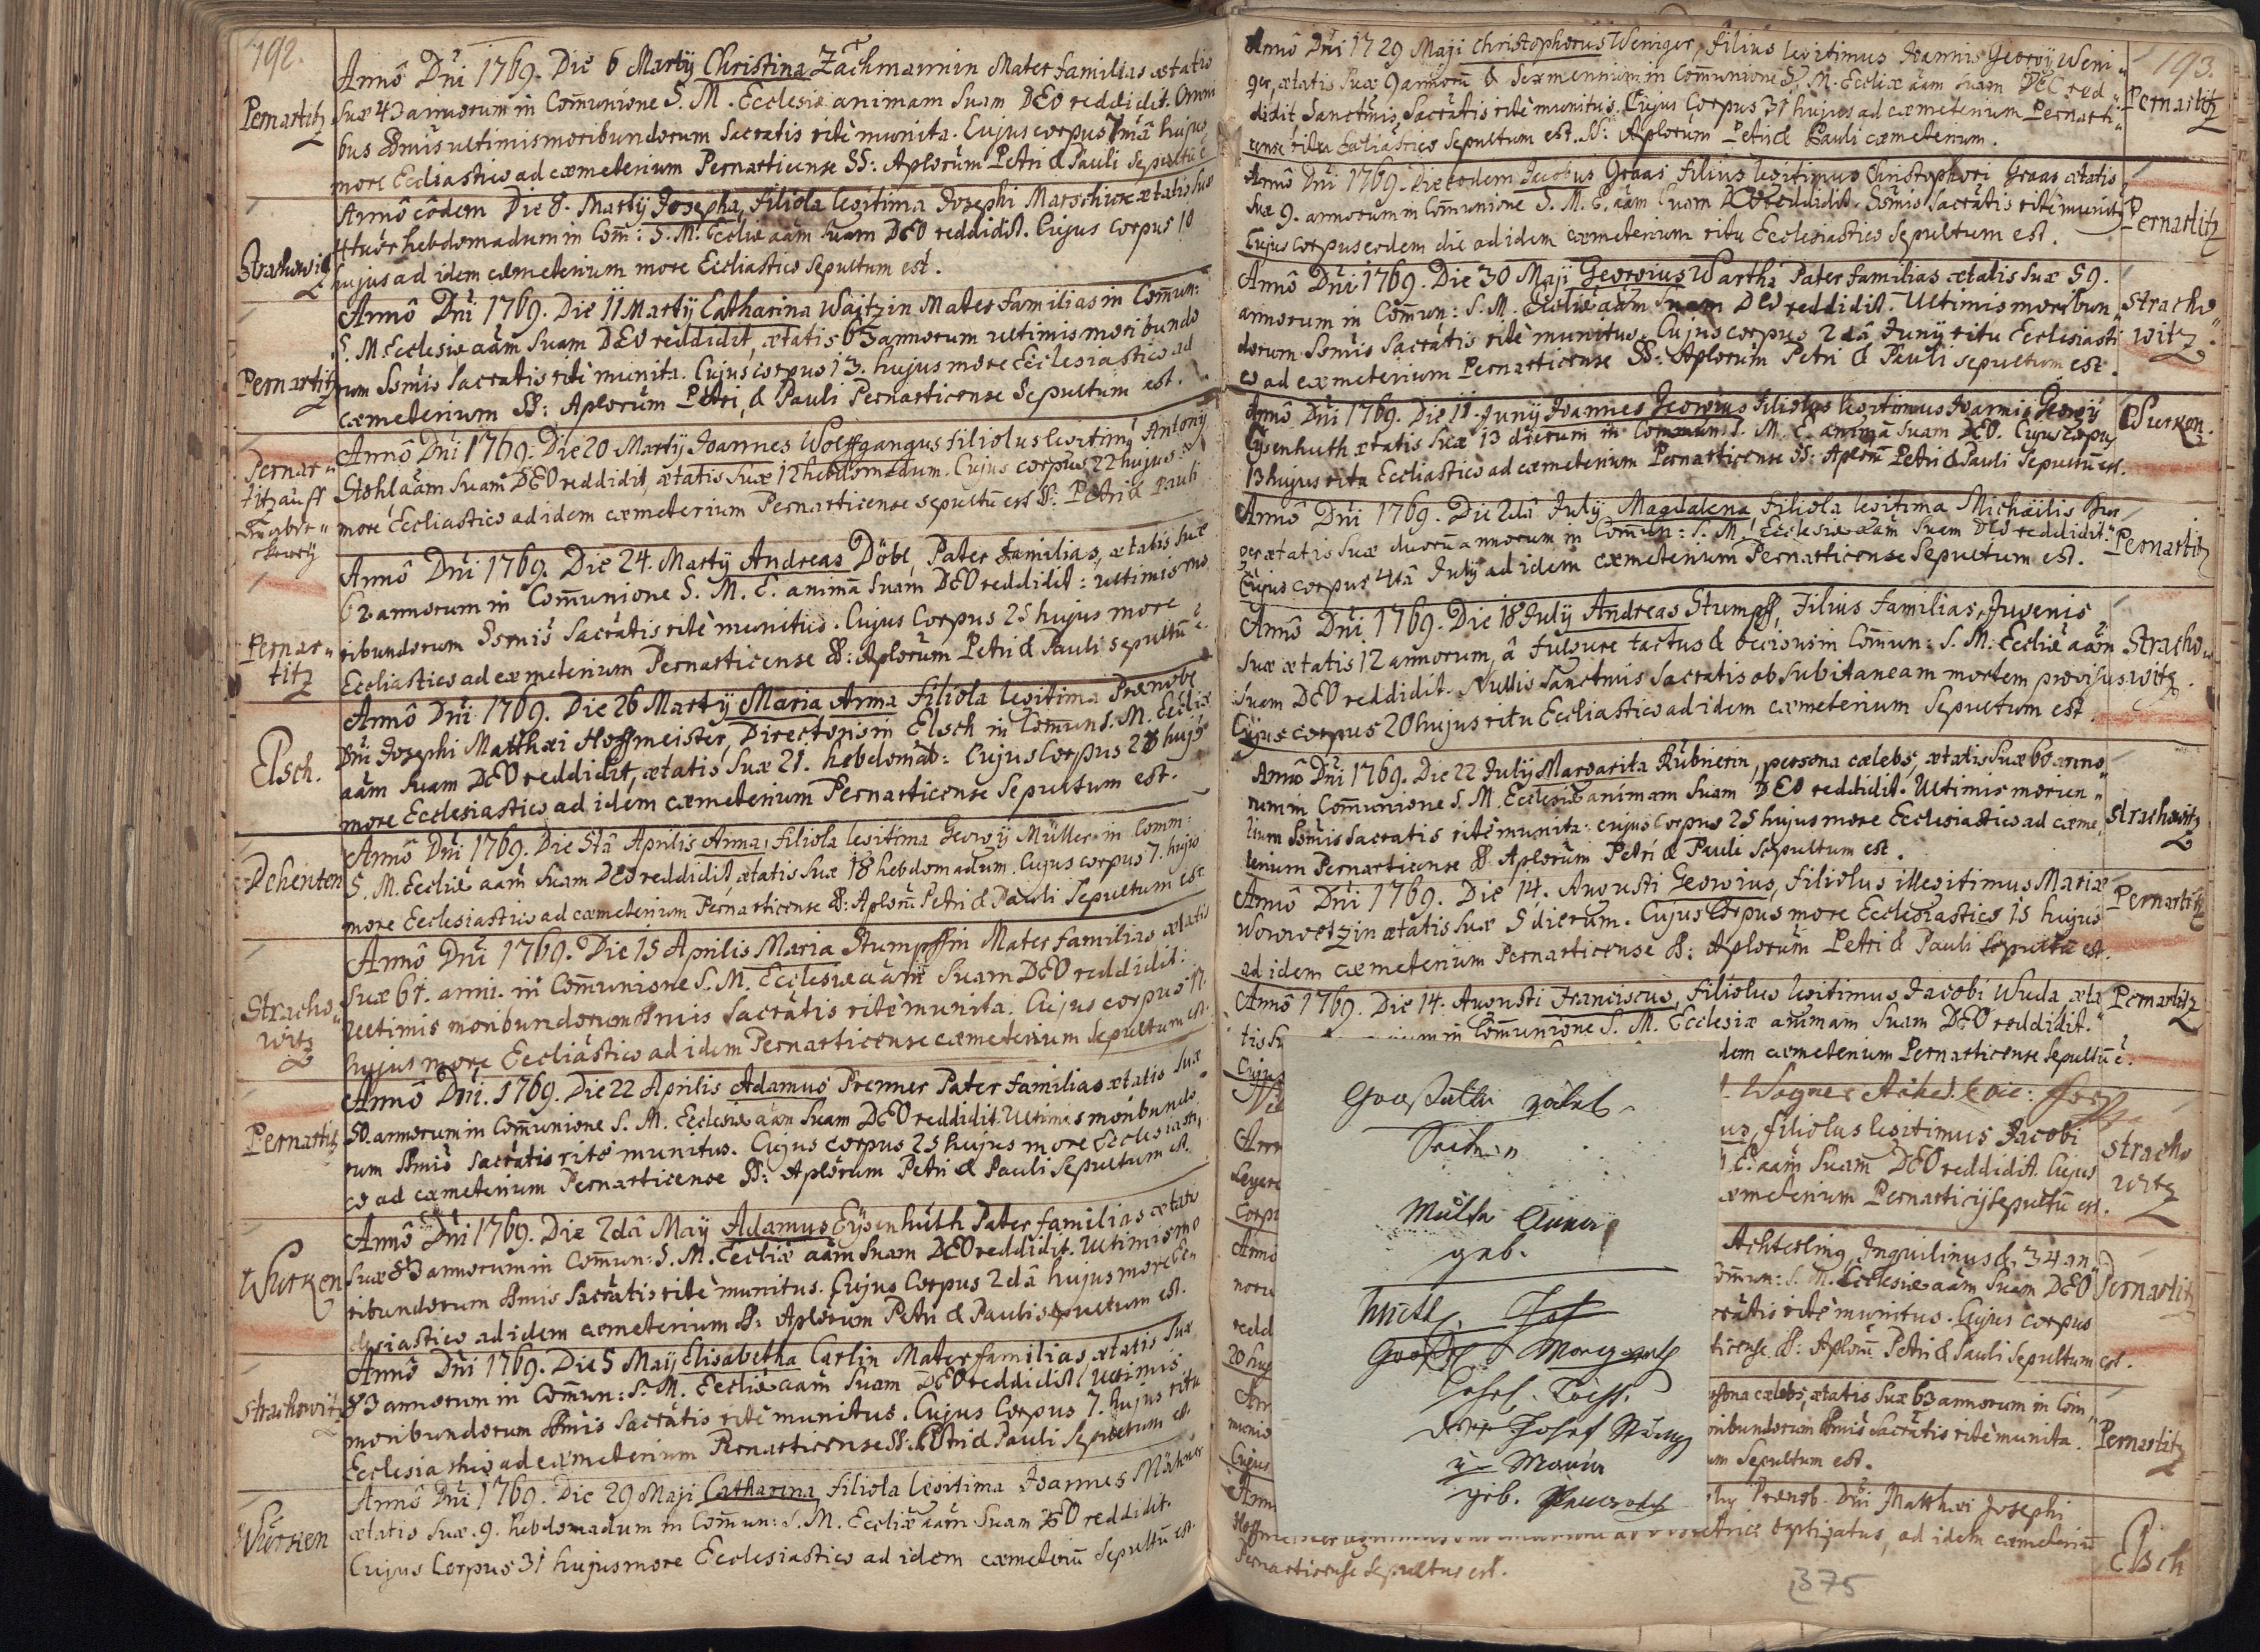 192.
Pernartitz
Annô Dni 1769. Die 6 Martÿ Christina Zächmannin Mater familias ætatis
suæ 43 annorum in Communione S. M. Ecclesiæ animam suam DEO reddidit. Omni
bus ssmis ultimis moribundorum Sacratis ritè munita. Cujus corpus 7mâ hujus
more Eccliastico ad cæmeterium Pernarticense SS: Aplorum Petri & Pauli sepultū ē
Strachowitz
Annô eôdem Die 8. Martÿ Josepha, filiola legitima Josephi Marschick ætatis suæ
4tuor hebdomadum in Com̄: S. M. Eccliæ aam̄ suam DEO reddidit. Cujus corpus 10
hujus ad idem cæmeterium more Eccliastico sepultum est.
Pernartitz
Annô Dni 1769. Die 11 Martÿ Catharina Waitzin Mater familias in Com̄un:
S. M. Ecclesiæ aam̄ suam DEO reddidit, ætatis 63 annorum ultimis moribundo
rum ssmis Sacratis ritè munita. Cujus corpus 13. hujus more Ecclesiastico ad
cæmeterium SS: Aplorum Petri, & Pauli Pernarticense sepultum est.
Pernar=
titz auff
Annô Dni 1769. Die 20 Martÿ Joannes Wolffgangus filiolus legitimꝰ Antonÿ
Stohl aam̄ suam DEO reddidit, ætatis suæ 12 hebdomadum. Cujus corpus 22 hujus
more Eccliastico ad idem cæmeterium Pernarticense sepultū est SS: Petri & Pauli
Pernar=
titz
Annô Dni 1769. Die 24. Martÿ Andreas Döbl, Pater familias, ætatis suæ
62 annorum in Communione S. M. E. animā suam DEO reddidit: ultimis mo
ribundorum ssmis Sacratis ritè munitus. Cujus Corpus 25 hujus more
Eccliastico ad cæmeterium Pernarticense SS: Aplorum Petri & Pauli sepultū ē.
Elsch.
Annô Dni 1769. Die 26 Martÿ Maria Anna filiola legitima Prænobl
Dni Josephi Matthæi Hoffmeister, Directoris in Elsch in Comun S. M. Eccliæ
aam̄ suam DEO reddidit, ætatis suæ 21. hebdomad: Cujus Corpus 28 hujꝰ
more Ecclesiastico ad idem cæmeterium Pernarticense sepultum est.
Dehenten
Annô Dni 1769. Die 5tâ Aprilis Anna, filiola legitima Georgÿ Müller in Comm:
S. M. Eccliæ aam̄ suam DEO reddidit, ætatis suæ 18 hebdomadum. Cujus corpus 7. hujus
more Ecclesiastico ad cæmeterium Pernarticense SS: Aplorū Petri & Pauli sepultum est
Stracho=
witz
Annô Dni 1769. Die 15 Aprilis Maria Stumpffin Mater familias ætatis
suæ 61. anni. in Communione S. M. Ecclesiæ aam̄ suam DEO reddidit:
Ultimis moribundorum ssmis Sacratis ritè munita. Cujus corpus 17.
hujus more Eccliastico ad idem Pernarticense cæmeterium sepultum est.
Pernartitz
Annô Dni. 1769. Die 22 Aprilis Adamus Prenner Pater familias ætatis suæ
50. annorum in Communione S. M. Ecclesiæ aam̄ suam DEO reddidit. Ultimis moribundo
rum ssmis Sacratis ritè munitus. Cujus corpus 25 hujus more Ecclesiasti
co ad cæmeterium Pernarticense SS: Aplorum Petri & Pauli sepultum est.
Wurken
Annô Dni 1769. Die 2dâ Maÿ Adamus Eÿsenhuth Pater familias ætatis
suæ 83 annorum in Com̄un: S. M. Eccliæ aam̄ suam DEO reddidit. Ultimis mo
ribundorum ssmis Sacratis ritè munitus. Cujus Corpus 2dâ hujus more Ec
clesiastico ad idem cæmeterium SS: Aplorum Petri & Pauli sepultum est.
Strachowitz
Annô Dni 1769. Die 5 Maÿ Elisabetha Carlin Mater familias, ætatis suæ
83 annorum in Com̄un: S. M. Eccliæ aam̄ suam DEO reddidit. Ultimis
moribundorum ssmis Sacratis ritè munitus. Cujus Corpus 7. hujus ritu
Ecclesiastico ad cæmeterium Pernarticense SS: Petri & Pauli sepultum est.
Wurken
Annô Dni 1769. Die 29 Maji Catharina filiola legitima Joannes
ætatis suæ. 9. hebdomadum in Com̄un: S. M. Eccliæ aam̄ suam DEO reddidit.
Cujus Corpus 31 hujus more Ecclesiastico ad idem cæmeteriū sepultū est.
193.
Annô Dni 1729 Maji Christophorus Weniger, filius legitimus Joannis Georgÿ Weni=
ger, ætatis suæ 9 annorū & in Com̄unione S. M. Eccliæ aam̄ suam DEO red=
didit Sanctmis, Sacratis ritè munitus. Cujus Corpus 31 hujus ad cæmeterium Pernarti=
cense ritu Eccliastico sepultum est. SS: Aplorum Petri & Pauli cæmeterium.
Pernartitz
Annô Dni 1769. Die eodem Jacobus Graas filius legitimus Christophori Graas ætatis
suæ 9. annorum in Com̄unione S. M. E. aam̄ suam DEO reddidit. Ssmis Sacratis ritè munitꝰ
Cujus corpus eodem die ad idem cæmeterium ritu Ecclesiastico sepultum est.
Pernartitz
Annô Dni 1769. Die 30 Maji Georgius Wartha Pater familias ætatis suæ 59.
annorum in Com̄un: S. M. Eccliæ aam̄ suam DEO reddidit. Ultimis moribun=
dorum ssmis Sacratis ritè munitus. Cujus corpus 2dâ Junÿ ritu Ecclesiasti
co ad cæmeterium Pernarticense SS: Aplorum Petri & Pauli sepultum est.
Stracho=
witz.
Annô Dni 1769. Die 11. Junÿ Joannes Georgius filiolus legitimus Joannis Georgÿ
Eÿsenhuth ætatis suæ 13 dierum in Commun S. M. E. animā suam DEO. Cujus Corpus
13 hujus ritu Eccliastico ad cæmeterium Pernarticense SS: Aplorū Petri & Pauli sepultū est.
Wurken.
Annô Dni 1769. Die 2dâ Julÿ Magdalena filiola legitima Michaëlis
ger ætatis suæ duorū annorum in Com̄un: S. M. Ecclesiæ aam̄ suam DEO reddidit.
Cujus corpus 4tâ Julÿ ad idem cæmeterium Pernarticense sepultum est.
Pernartitz
Annô Dni 1769. Die 18 Julÿ Andreas Stumpff, Filius familias, Juvenis
suæ ætatis 12 annorum, â fulgure tactus & occisus in Com̄un: S. M. Eccliæ aam̄
suam DEO reddidit. Nullis Sanctmis Sacratis ob subitaneam mortem provisus
Cujus corpus 20 hujus ritu Eccliastico ad idem cæmeterium sepultum est.
Stracho=
witz.
Annô Dni 1769. Die 22 Julÿ Margarita Rübnerin, persona cælebs, ætatis suæ 60 anno=
rum in Communione S. M. Ecclesiæ animam suam DEO reddidit. Ultimis morien=
tium ssmis Sacratis ritè munita: cujus Corpus 25 hujus more Ecclesiastico ad cæme
terium Pernarticense SS Aplorum Petri & Pauli sepultum est.
Strachowitz
Annô Dni 1769. Die 14. Augusti Georgius, filiolus illegitimus Mariæ
Wowwetzin ætatis suæ 5 dierum. Cujus Corpus more Ecclesiastico 15 hujus
ad idem cæmeterium Pernarticense SS: Aplorum Petri & Pauli sepultū est.
Pernartitz
Annô 1769. Die 14. Augusti Franciscus, filiolus legitimus Jacobi Wuda æta
tis su in Com̄unione S. M. Ecclesiæ animam suam DEO reddidit.
Cujus dem cæmeterium Pernarticense sepultū ē.
Pernartitz
Wagner
us, filiolus legitimus Jacobi
E. aam̄ suam DEO reddidit. Cujus
cæmeterium Pernarticÿ sepultū est.
Stracho
witz
Achterling, Inquilinus & 34 an
Com̄un: S. M. Ecclesiæ aam̄ suam DEO
cratis ritè munitus. Cujus corpus
ticense SS: Aplorū Petri & Pauli sepultum est.
Pernartitz
rsona cælebs, ætatis suæ 63 annorum in Com
oribundorum ssmis Sacratis ritè munita.
um sepultum est.
Pernartitz
Prænob. Dni Matthæi Josephi
baptizatus, ad idem cæmeteriū
Pernarticense sepultus est.
Elsch
375
Anna
geb.
Josef
u Maria
geb.